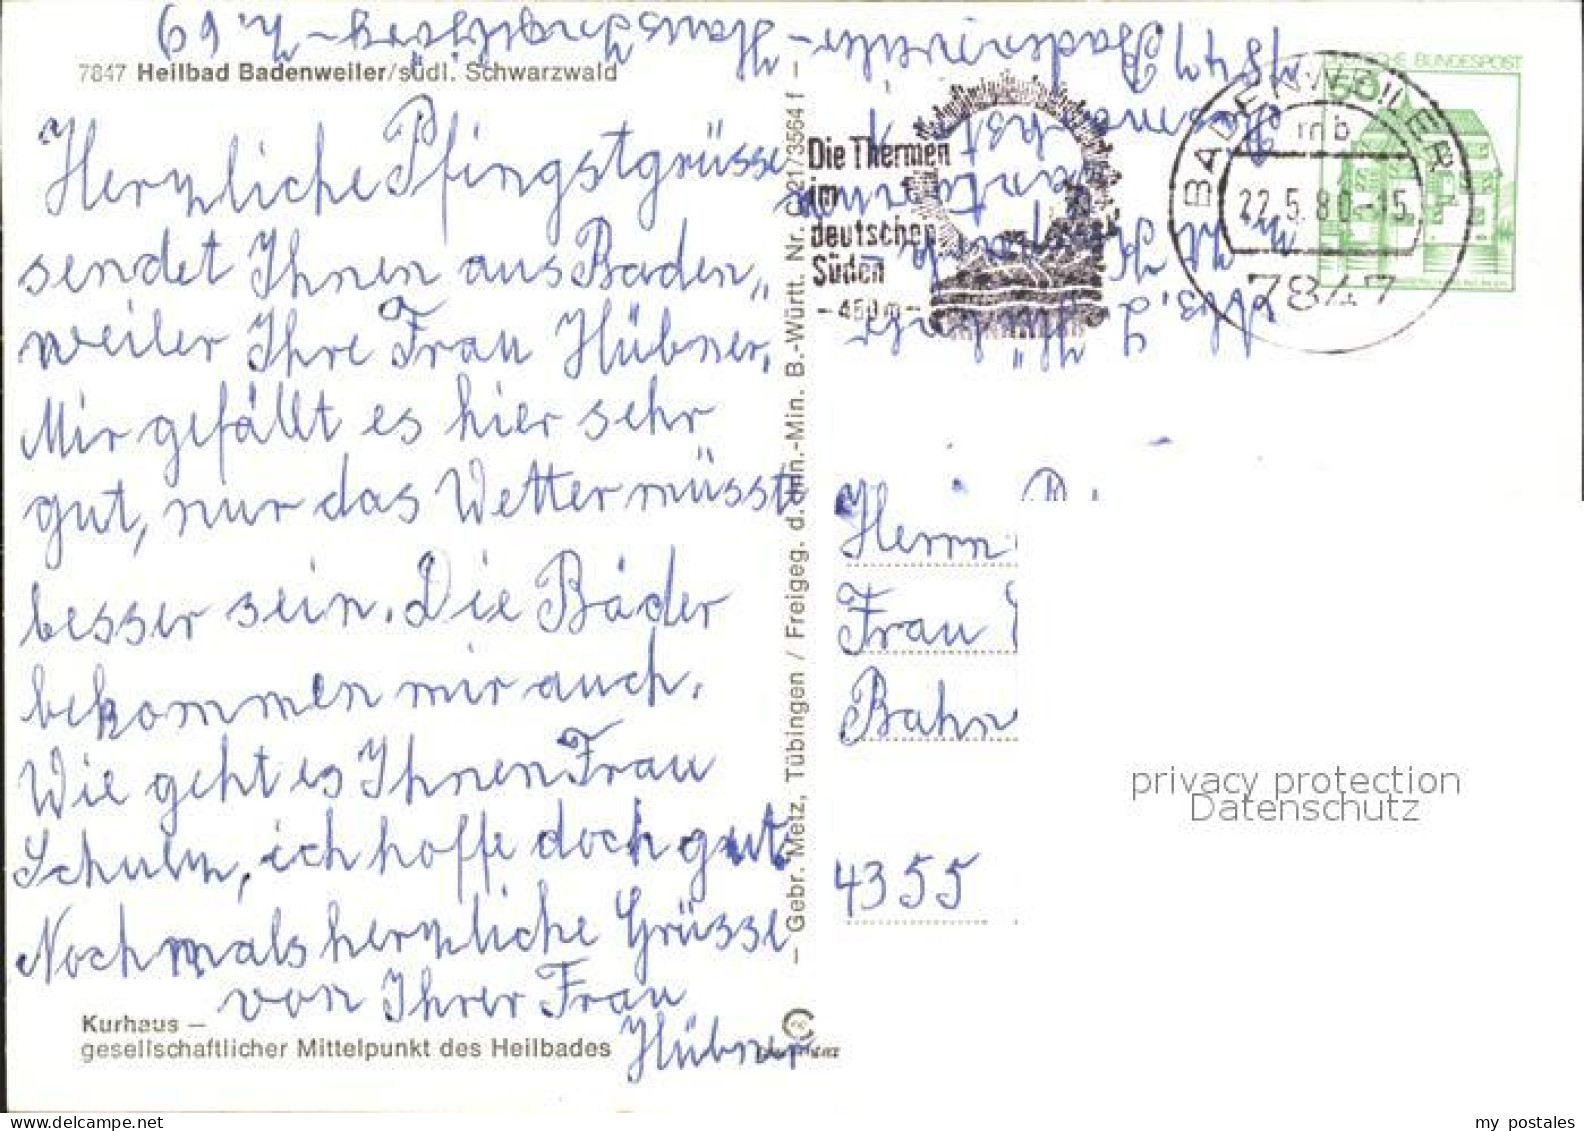 7847 Heilbad Badenweiler/südl. Schwarzwald
Herzliche Pfingstgrüsse
sendet Ihnen aus Baden„
weiler Ihre Frau Hübner.
Mir gefällt es hier sehr
gut, nur das Wetter müsste
besser sein. Die Bäder
bekommen mir auch.
Wie geht es Ihnen Frau
Schulz, ich hoffe doch gut.
Nochmals herzliche Grüsse
von Ihrer Frau
Hübner
Kurhaus —
gesellschaftlicher Mittelpunkt des Heilbades
— Gebr. Metz, Tübingen / Freigeg. d. Inn.-Min. B.-Württ. Nr.
7847 Badenweiler
Die Thermen
im
deutschen
Süden
- 450 m -
BADENWEILER
mb
22.5.80-15
7847
DEUTSCHE BUNDESPOST
50
Herrn
Frau
Bahn
4355
privacy protection
Datenschutz
my postales